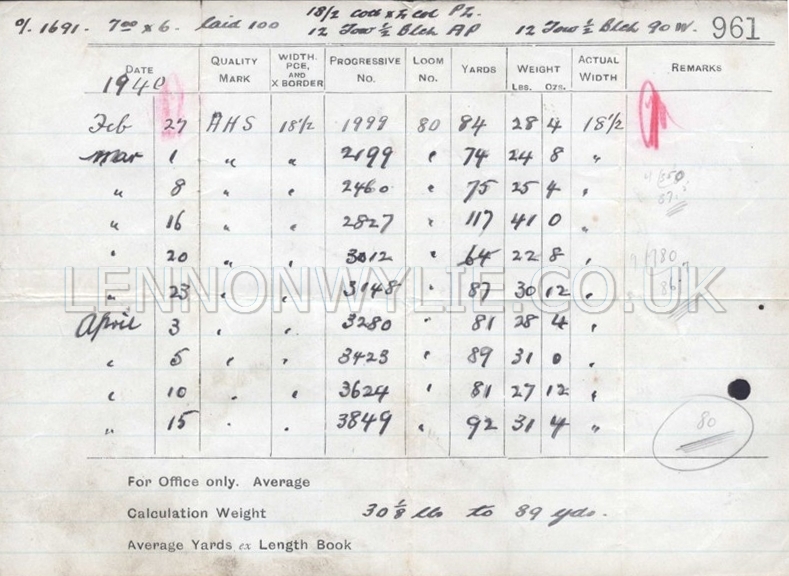 18/2
o/. 1691. 7°° x 6. Laid 100 12 Tow ½ Blch AP 12 Tow ½ Blch 90 W. 961
DATE QUALITY MARK WIDTH, PCE, AND X BORDER PROGRESSIVE No. LOOM No. YARDS WEIGHT LBS. OZS. ACTUAL WIDTH REMARKS
1940
Feb 27 AHS 18½ 1999 80 84 28 4 18½
Mar 1 " " 2199 " 74 24 8 "
" 8 " " 2460 " 75 25 4 "
" 16 " " 2827 " 117 41 0 "
" 20 " " 3012 " 64 22 8 "
" 23 " " 3148 " 87 30 12 "
April 3 " " 3280 " 81 28 4 "
" 5 " " 3423 " 89 31 0 "
" 10 " " 3624 " 81 27 12 "
" 15 " " 3849 " 92 31 4 "
80
LENNONWYLIE.CO.UK
For Office only. Average
Calculation Weight 30 ⅛ lbs to 89 yds.
Average Yards ex Length Book